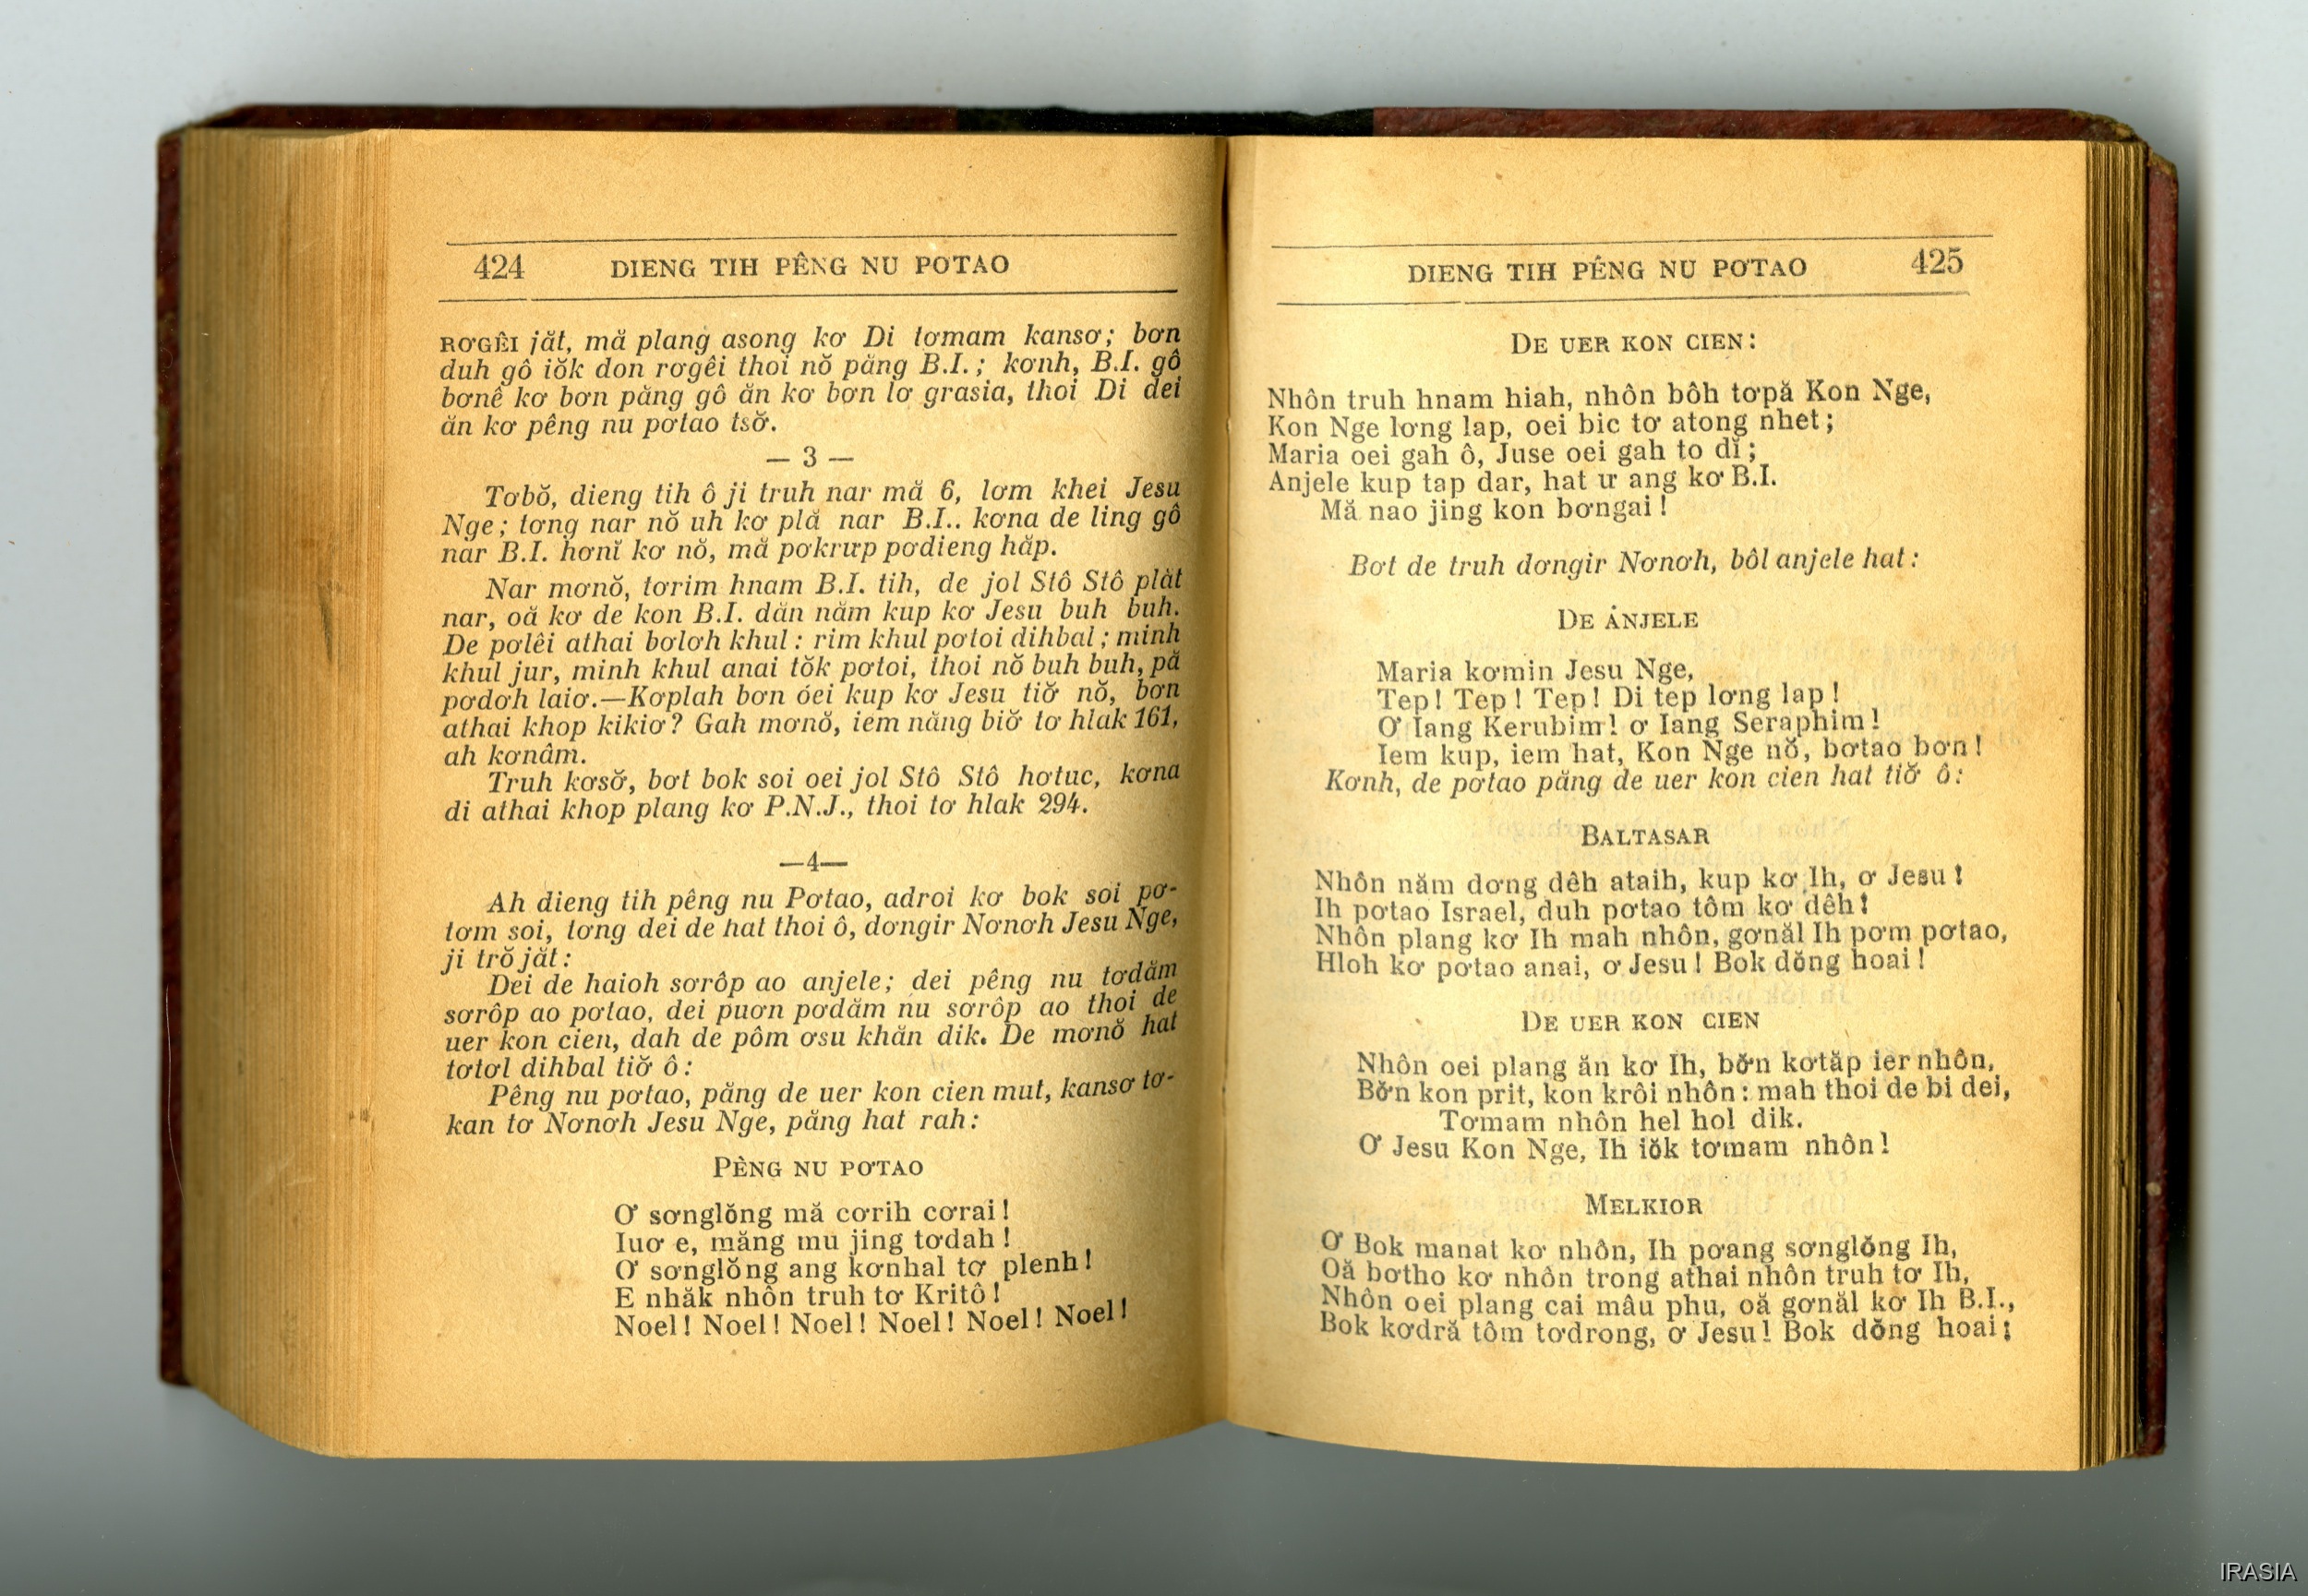 424 DIENG TIH PÊNG NU PƠTAO
RƠGÊI jăt, mă plang asong kơ Di tơmam kansơ; bơn
duh gô iŏk don rơgêi thoi nŏ păng B.I.; kơnh, B.I. gô
bơnê kơ bơn păng gô ăn kơ bơn lơ grasia, thoi Di dei
ăn kơ pêng nu pơtao tsơ̆.
— 3 —
Tơbŏ, dieng tih ô ji truh nar mă 6, lơm khei Jesu
Nge; tơng nar nŏ uh kơ plă nar B.I.. kơna de ling gô
nar B.I. hơnĭ kơ nŏ, mă pơkrưp pơdieng hăp.
Nar mơnŏ, tơrim hnam B.I. tih, de jol Stô Stô plăt
nar, oă kơ de kon B.I. dăn năm kup kơ Jesu buh buh.
De pơlêi athai bơlơh khul: rim khul pơtoi dihbal; minh
khul jur, minh khul anai tŏk pơtoi, thoi nŏ buh buh, pă
pơdơh laiơ.—Kơplah bơn óei kup kơ Jesu tiơ̆ nŏ, bơn
athai khop kikiơ? Gah mơnŏ, iem năng biơ̆ tơ hlak 161,
ah kơnâm.
Truh kơsơ̆, bơt bok soi oei jol Stô Stô hơtuc, kơna
di athai khop plang kơ P.N.J., thoi tơ hlak 294.
—4—
Ah dieng tih pêng nu Pơtao, adroi kơ bok soi pơ-
tơm soi, tơng dei de hat thoi ô, dơngir Nơnơh Jesu Nge,
ji trŏ jăt:
Dei de haioh sơrôp ao anjele; dei pêng nu tơdăm
sơrôp ao pơtao, dei puơn pơdăm nu sơrôp ao thoi de
uer kon cien, dah de pôm ơsu khăn dik. De mơnŏ hat
tơtơl dihbal tiơ̆ ô:
Pêng nu pơtao, păng de uer kon cien mut, kansơ tơ-
kan tơ Nơnơh Jesu Nge, păng hat rah:
PÊNG NU PƠTAO
Ơ sơnglŏng mă cơrih cơrai!
Iuơ e, măng mu jing tơdah!
Ơ sơnglŏng ang kơnhal tơ plenh!
E nhăk nhôn truh tơ Kritô!
Noel! Noel! Noel! Noel! Noel! Noel!
DIENG TIH PÊNG NU PƠTAO 425
DE UER KON CIEN:
Nhôn truh hnam hiah, nhôn bôh tơpă Kon Nge,
Kon Nge lơng lap, oei bic tơ atong nhet;
Maria oei gah ô, Juse oei gah to dĭ;
Anjele kup tap dar, hat ư ang kơ B.I.
Mă nao jing kon bơngai!
Bơt de truh dơngir Nơnơh, bôl anjele hat:
DE ANJELE
Maria kơmin Jesu Nge,
Tep! Tep! Tep! Di tep lơng lap!
Ơ Iang Kerubim! ơ Iang Seraphim!
Iem kup, iem hat, Kon Nge nŏ, bơtao bơn!
Kơnh, de pơtao păng de uer kon cien hat tiơ̆ ô:
BALTASAR
Nhôn năm dơng dêh ataih, kup kơ Ih, ơ Jesu!
Ih pơtao Israel, duh pơtao tôm kơ dêh!
Nhôn plang kơ Ih mah nhôn, gơnăl Ih pơm pơtao,
Hloh kơ pơtao anai, ơ Jesu! Bok dŏng hoai!
DE UER KON CIEN
Nhôn oei plang ăn kơ Ih, bơ̆n kơtăp ier nhôn,
Bơ̆n kon prit, kon krôi nhôn: mah thoi de bi dei,
Tơmam nhôn hel hol dik.
Ơ Jesu Kon Nge, Ih iŏk tơmam nhôn!
MELKIOR
Ơ Bok manat kơ nhôn, Ih pơang sơnglŏng Ih,
Oă bơtho kơ nhôn trong athai nhôn truh tơ Ih,
Nhôn oei plang cai mâu phu, oă gơnăl kơ Ih B.I.,
Bok kơdră tôm tơdrong, ơ Jesu! Bok dŏng hoai;
IRASIA